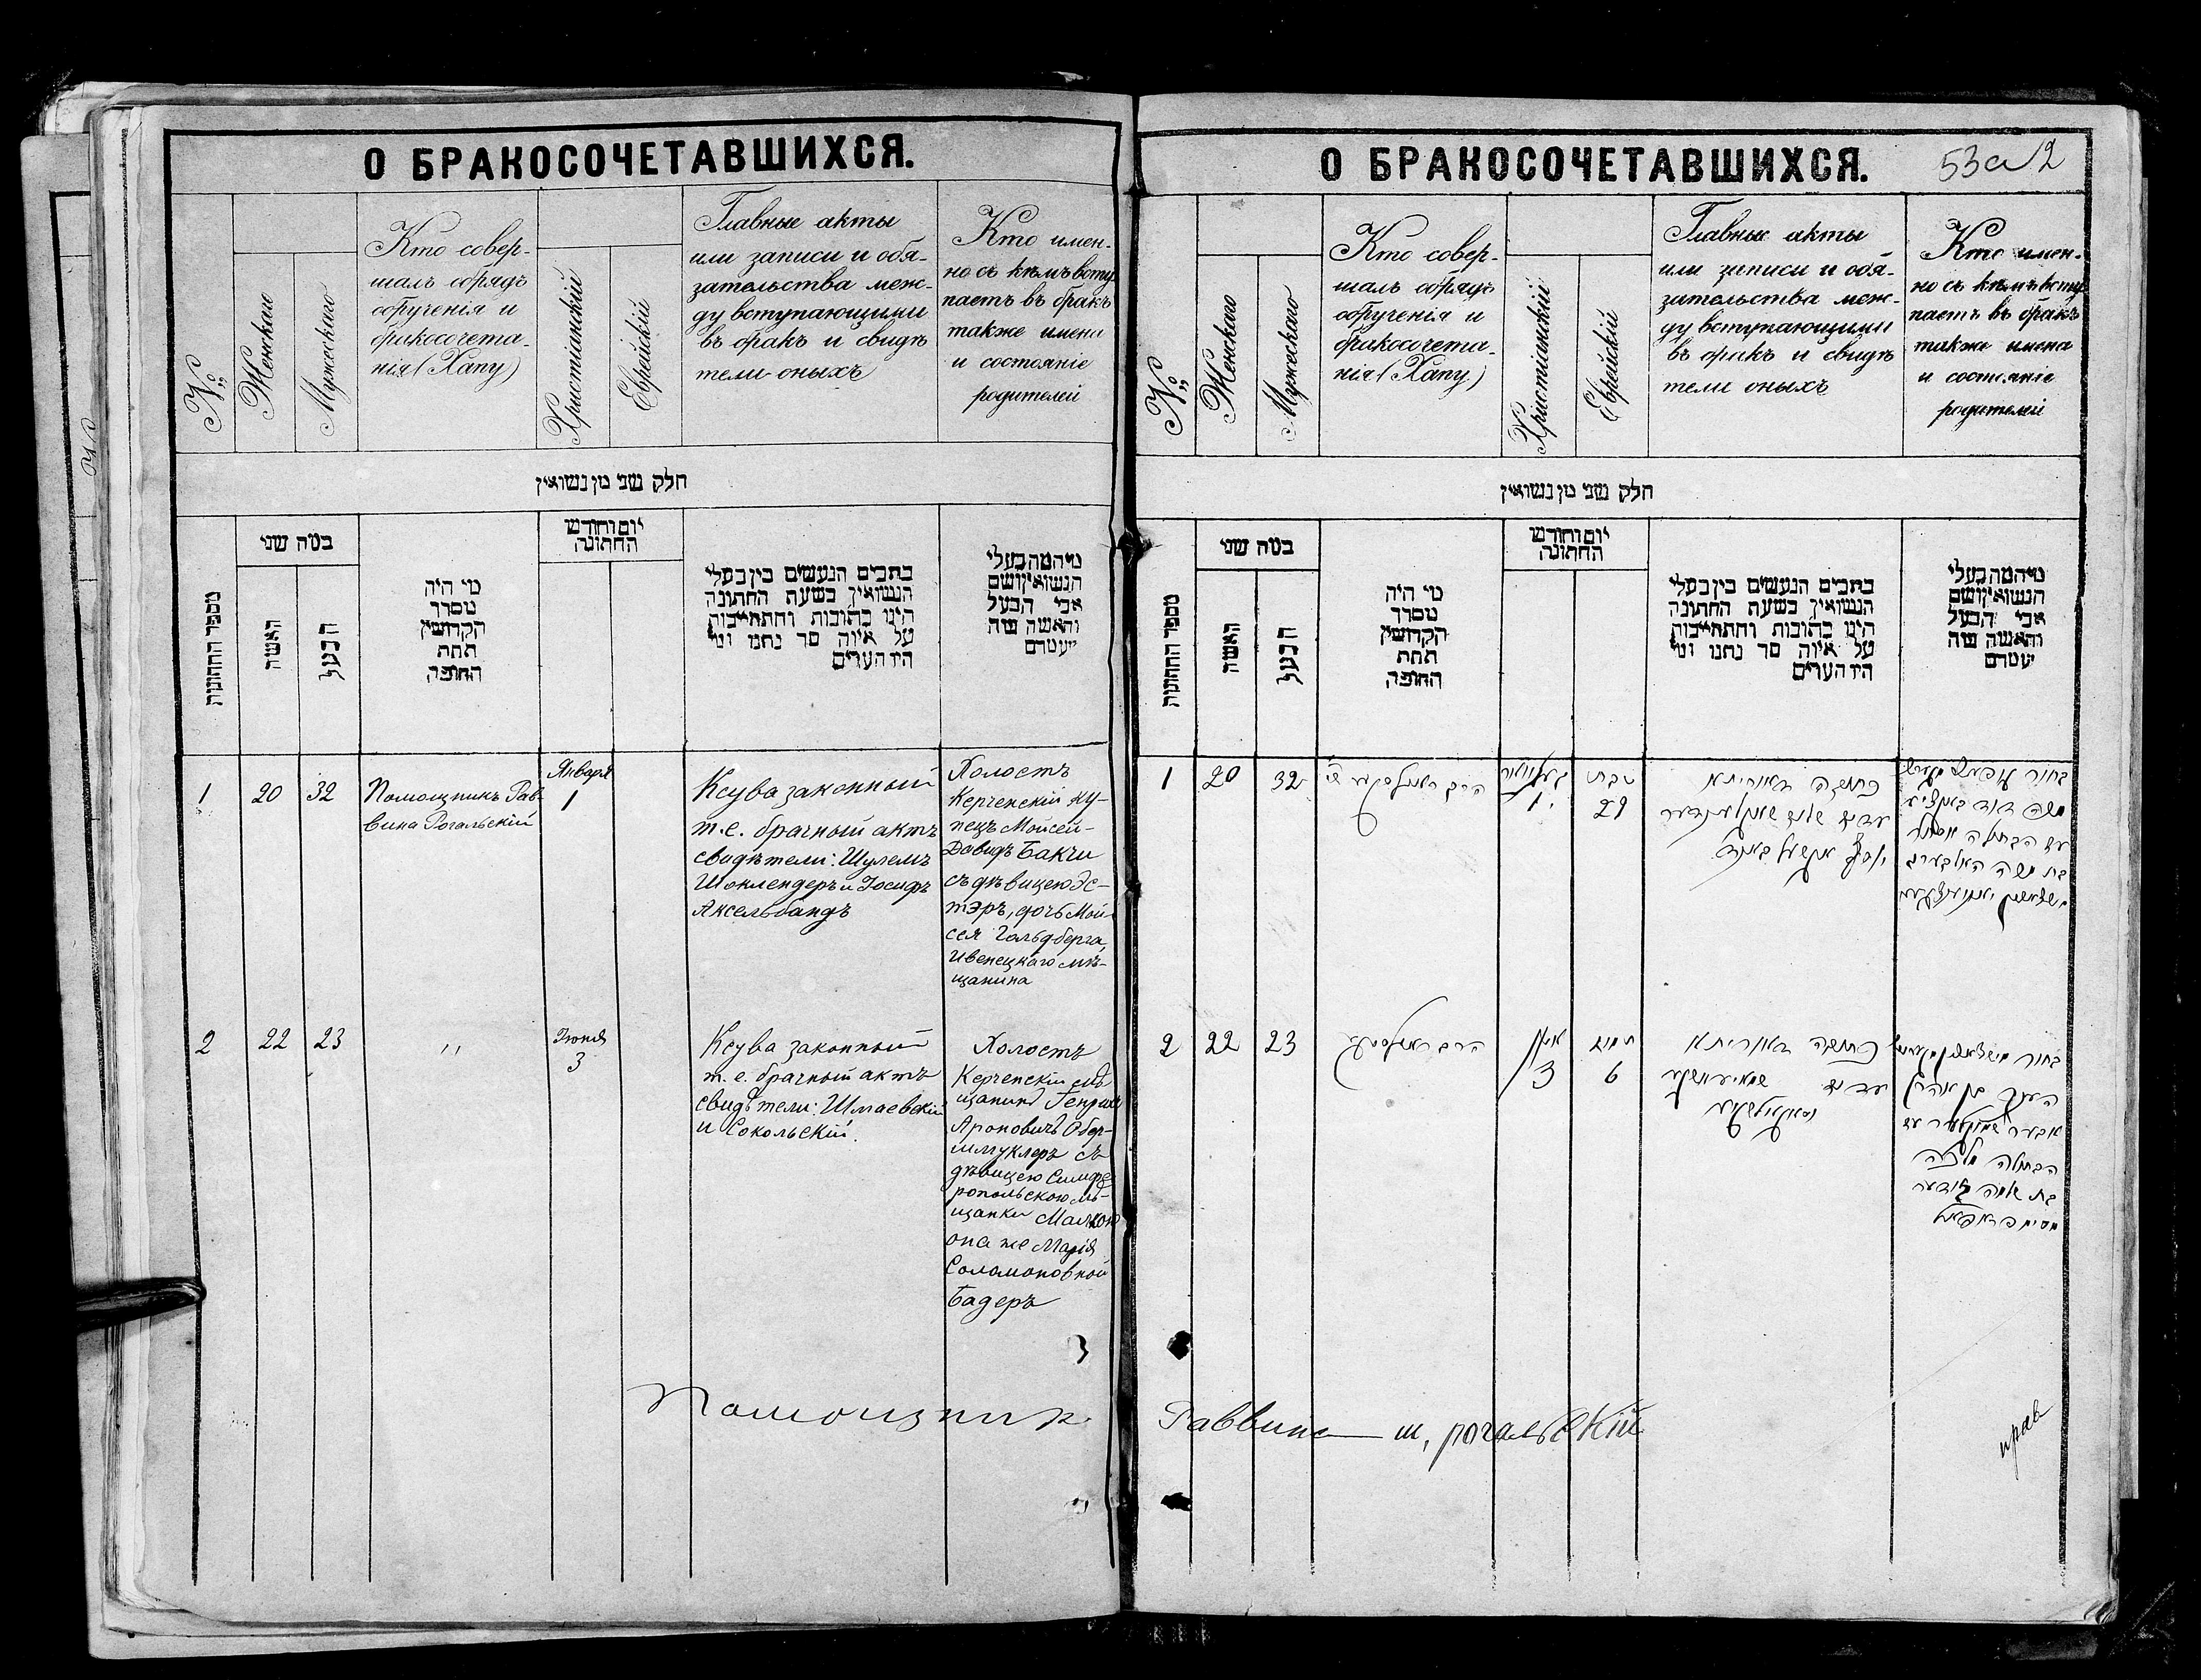 О БРАКОСОЧЕТАВШИХСЯ.
№
Женскаго
Мужескаго
Кто совер-
шалъ обрядъ
обрученія и
бракосочета-
нія (Хапу)
Христіанскій
Еврейскій
Главные акты
или записи и обя-
зательства меж-
ду вступающими
въ бракъ и свидѣ
тели оныхъ
Кто имен-
но съ кѣмъ всту
паетъ въ бракъ
также имена
и состояніе
родителей
חלק שני מן נשואין
מספר החתונות
במה שני
האשה
הבעל
מי היה
מסדר
הקדושין
תחת
החופה
יום וחודש
החתונה
כתבים הנעשים בין בעלי
הנשואין בשעת החתונה
היינו כתובות והתחייבות
על איזה סך נתנו ומי
היו העדים
מי המה בעלי
הנשואין ושם
אבי הבעל
והאשה ומה
מעמדם
1
20
32
Помощникъ Рав-
вина Рогальскій
Января
1
Ксува законный
т.е. брачный актъ
свидѣтели: Шулемъ
Шоклендеръ и Іосифъ
Аксельбандъ
Холостъ
Керченскій ку-
пецъ Мойсей-
Давидъ Бакчи
съ дѣвицею Эс-
тэръ, дочь Мой-
сея Гольдберга,
Ивенецкаго мѣ-
щанина
2
22
23
"
Іюня
3
Ксува законный
т.е. брачный актъ
свидѣтели: Шмаевскій
и Сокольскій.
Холостъ
Керченскій мѣ
щанинъ Генрихъ
Ароновичъ Обер-
шмуклеръ съ
дѣвицею Симфе
ропольскою мѣ-
щанки Малкою
она же Марія
Соломоновной
Бадеръ
Помощникъ
О БРАКОСОЧЕТАВШИХСЯ.
53а 2
№
Женскаго
Мужескаго
Кто совер-
шалъ обрядъ
обрученія и
бракосочета-
нія (Хапу)
Христіанскій
Еврейскій
Главные акты
или записи и обя-
зательства меж-
ду вступающими
въ бракъ и свидѣ
тели оныхъ
Кто имен-
но съ кѣмъ всту
паетъ въ бракъ
также имена
и состояніе
родителей
חלק שני מן נשואין
מספר החתונות
במה שני
האשה
הבעל
מי היה
מסדר
הקדושין
תחת
החופה
יום וחודש
החתונה
כתבים הנעשים בין בעלי
הנשואין בשעת החתונה
היינו כתובות והתחייבות
על איזה סך נתנו ומי
היו העדים
מי המה בעלי
הנשואין ושם
אבי הבעל
והאשה ומה
מעמדם
1
20
32
1
טבת
29
כתובה דאוריתא
בחור
משה דוד
עם הבתולה אסתר
בת משה האלבערג
2
22
23
3
תמוז
6
כתובה דאוריתא
בחור
בן אהרן
הבתולה מלכה
בת שלמה
Раввина ш, рогальскій